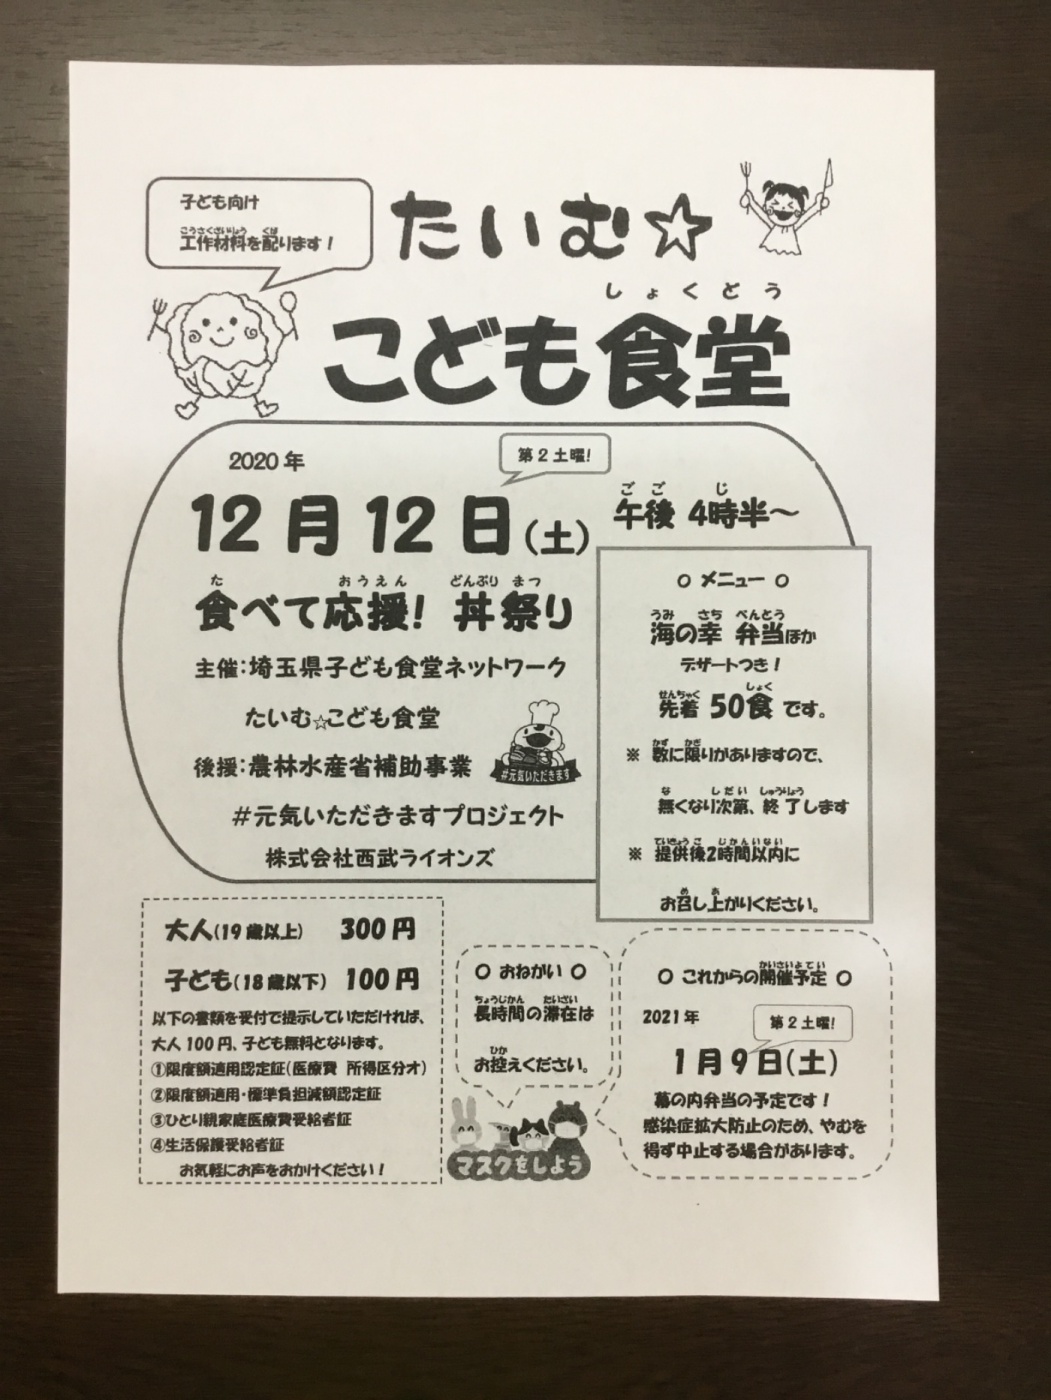 子ども向け
こうさくざいりょう くば
工作材料を配ります！
たいむ☆
しょくどう
こども食堂
2020年
第2土曜!
12月12日(土)
ごご じ
午後 4時半～
た おうえん どんぶり まつ
食べて応援! 丼祭り
主催:埼玉県子ども食堂ネットワーク
たいむ☆こども食堂
後援:農林水産省補助事業
#元気いただきます
#元気いただきますプロジェクト
株式会社西武ライオンズ
○ メニュー ○
うみ さち べんとう
海の幸 弁当ほか
デザートつき！
せんちゃく しょく
先着 50食 です。
かず かぎ
※ 数に限りがありますので、
な しだい しゅうりょう
無くなり次第、終了します
ていきょうご じかんいない
※ 提供後2時間以内に
め あ
お召し上がりください。
大人(19歳以上) 300円
子ども(18歳以下) 100円
以下の書類を受付で提示していただければ、
大人100円、子ども無料となります。
①限度額適用認定証(医療費 所得区分オ)
②限度額適用・標準負担減額認定証
③ひとり親家庭医療費受給者証
④生活保護受給者証
お気軽にお声をおかけください！
○ おねがい ○
ちょうじかん たいざい
長時間の滞在は
ひか
お控えください。
マスクをしよう
かいさいよてい
○ これからの開催予定 ○
2021年
第2土曜!
1月9日(土)
幕の内弁当の予定です！
感染症拡大防止のため、やむを
得ず中止する場合があります。